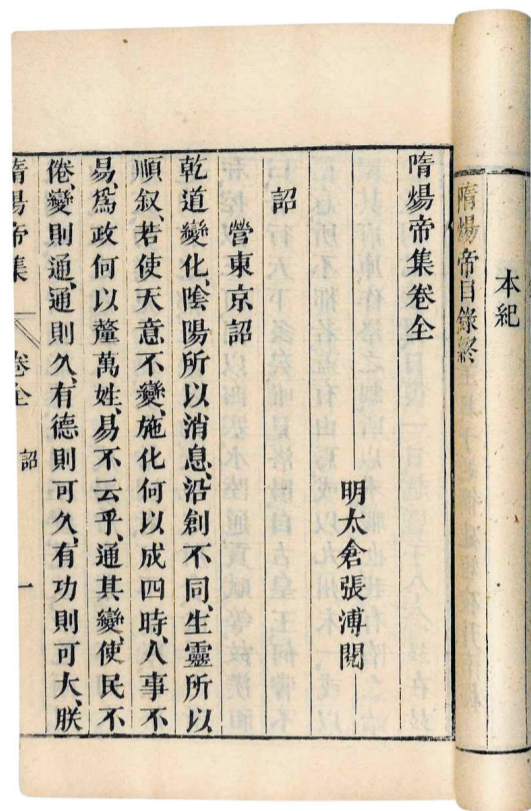 本紀
隋煬帝目錄終
隋煬帝集卷全
明太倉張溥閱
詔
營東京詔
乾道變化、陰陽所以消息、沿創不同、生靈所以
順叙、若使天意不變、施化何以成四時、人事不
易、爲政何以釐萬姓、易不云乎、通其變、使民不
倦、變則通、通則久、有德則可久、有功則可大、朕
隋煬帝集 卷全 詔 一